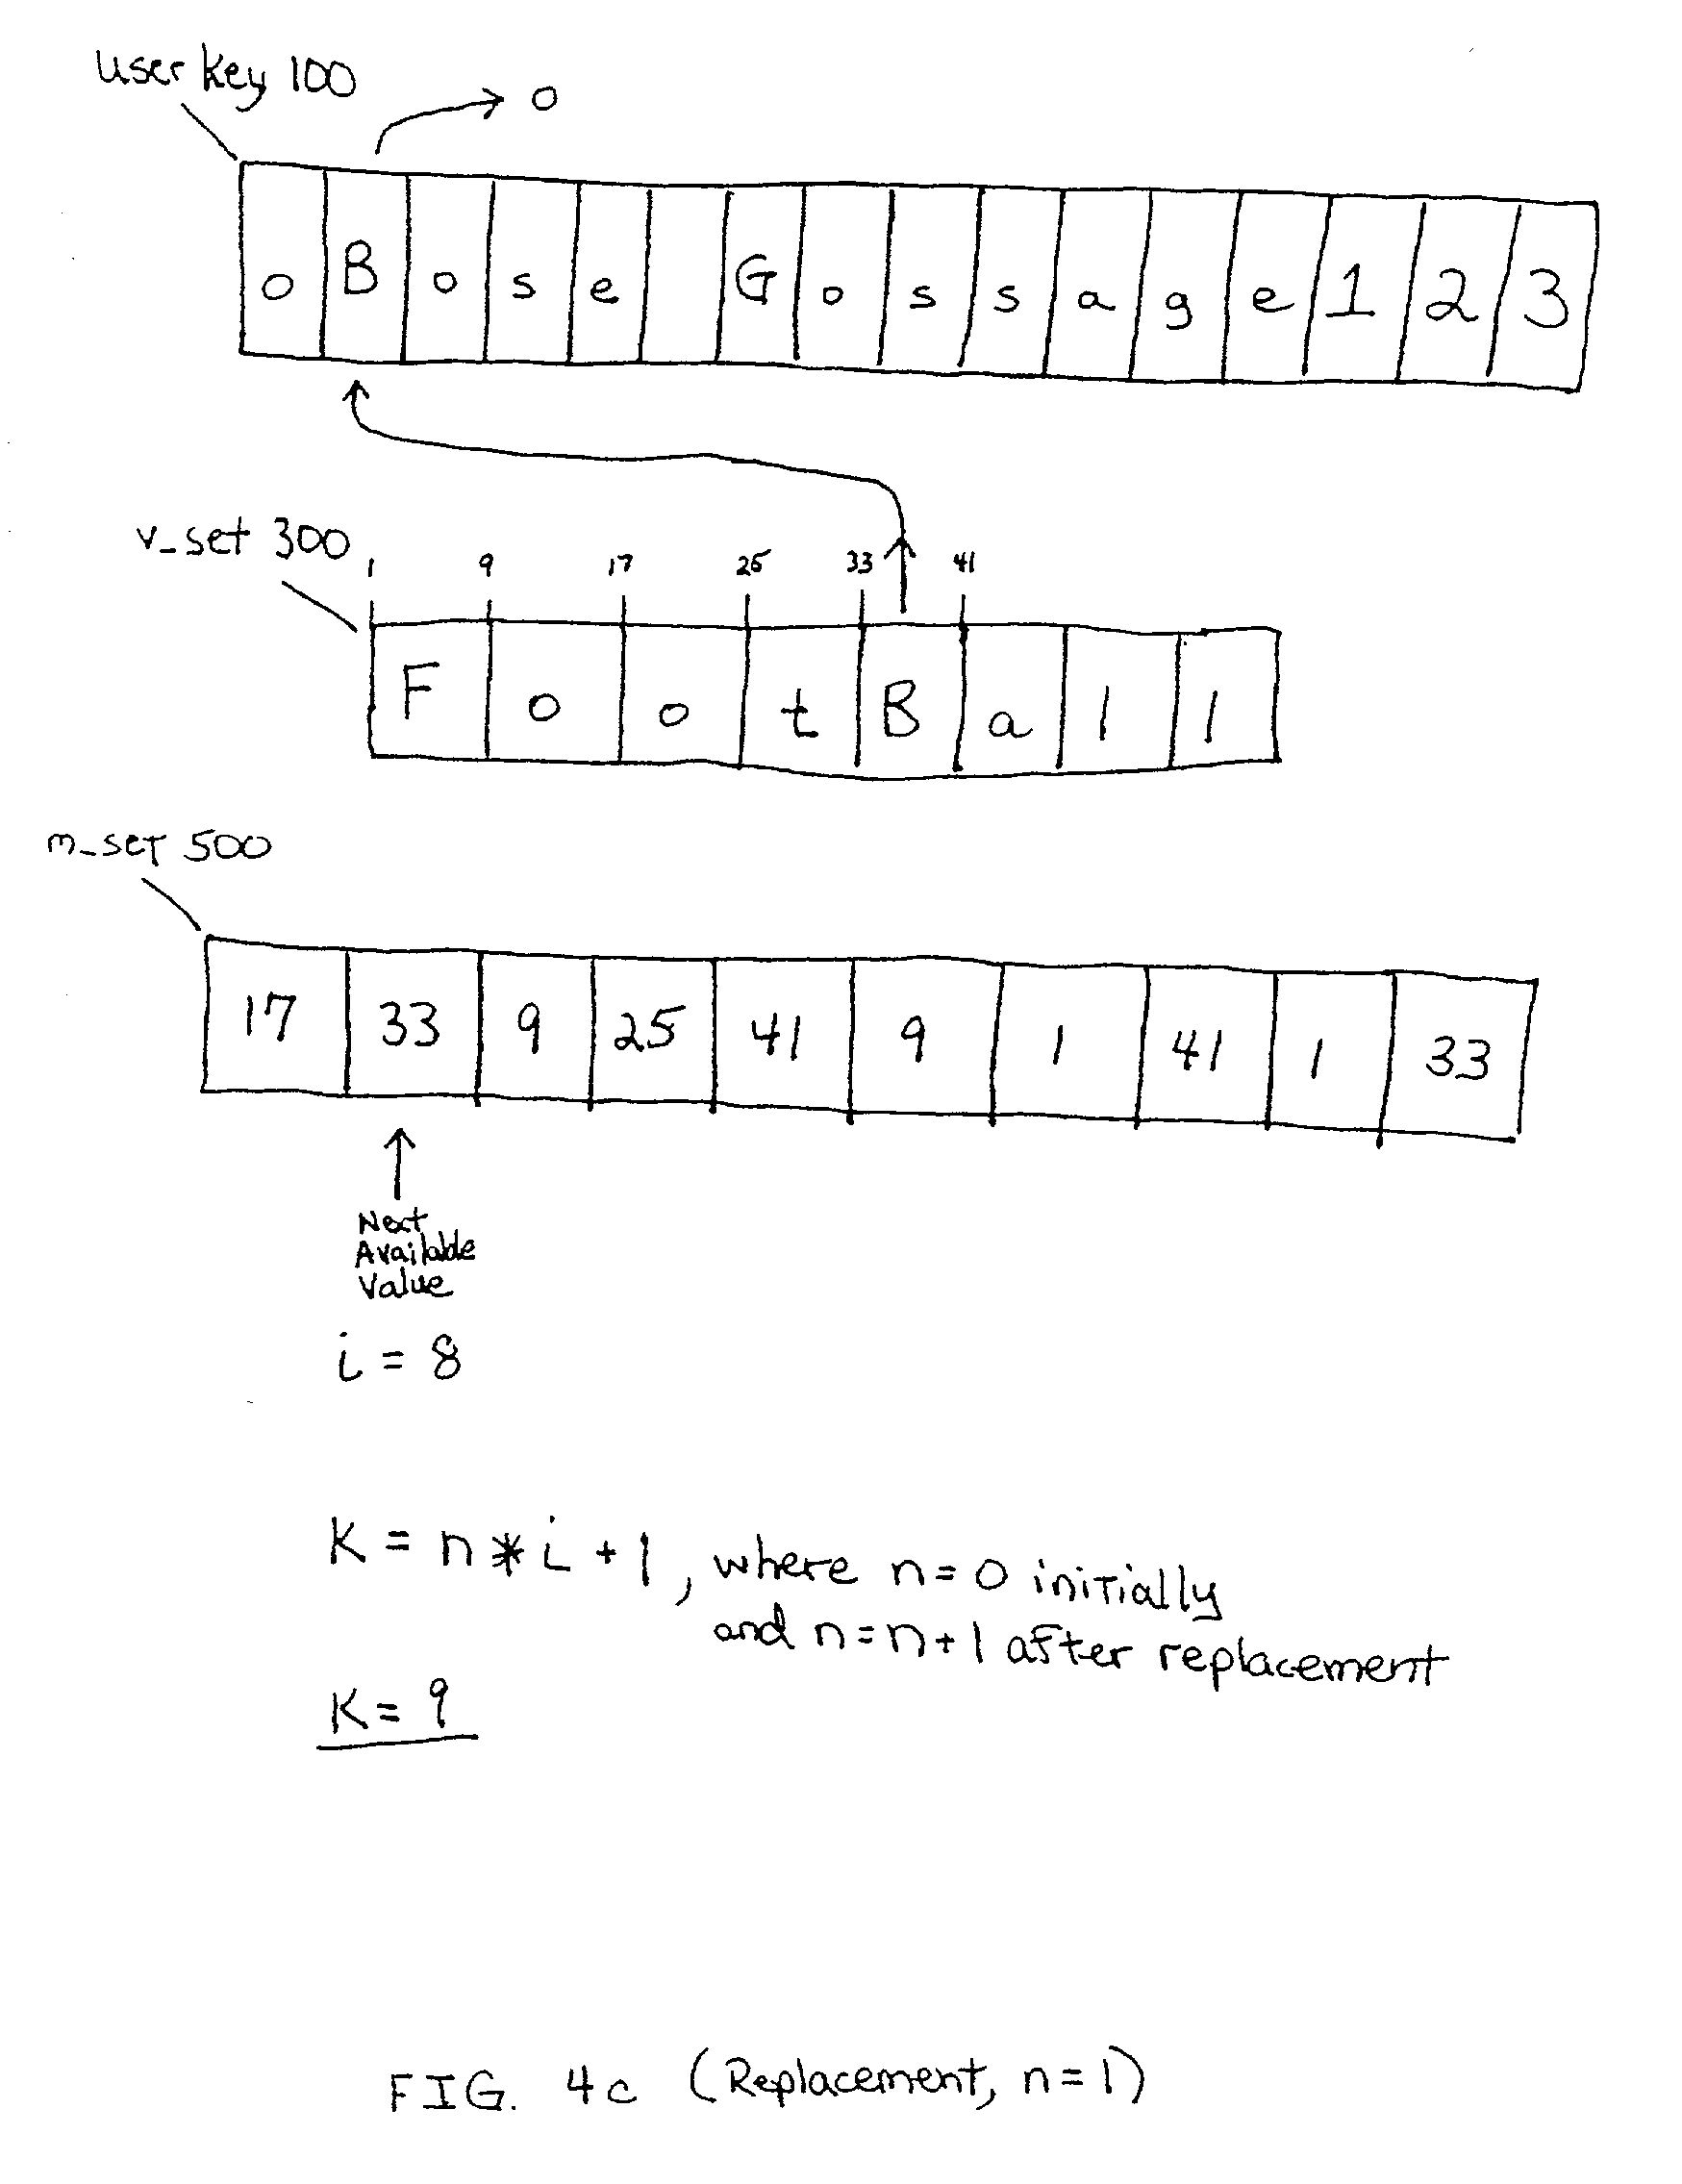 user key 100
o
o B o s e G o s s a g e 1 2 3
v_set 300
1 9 17 25 33 41
F o o t B a l l
m_set 500
17 33 9 25 41 9 1 41 1 33
Next
Available
Value
i = 8
K = n * i + 1, where n = 0 initially
and n = n + 1 after replacement
K = 9
FIG. 4c (Replacement, n = 1)